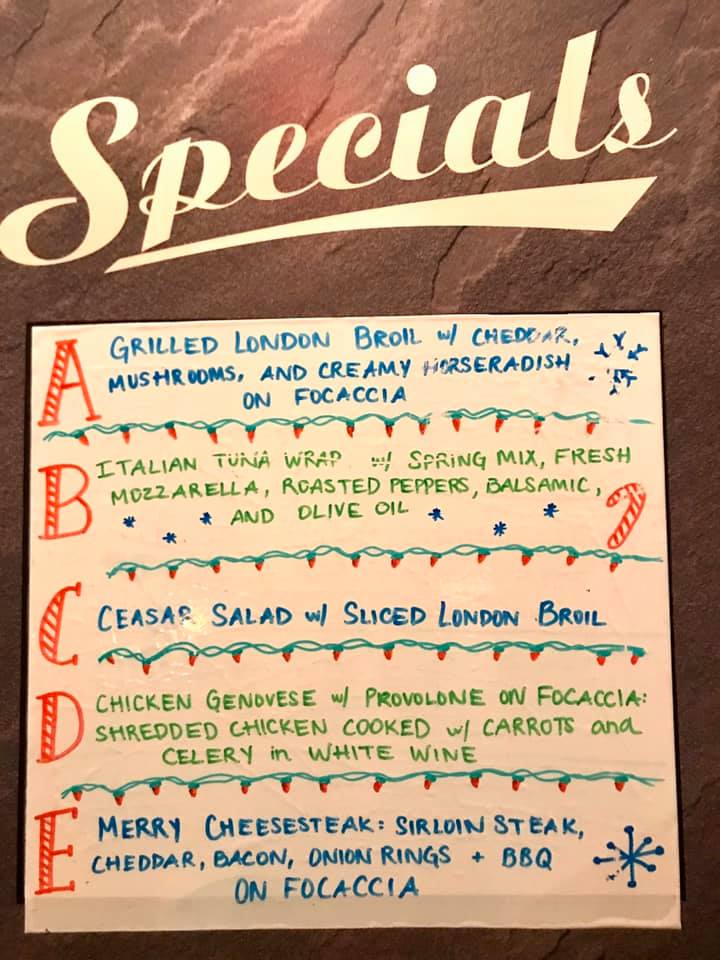 Specials
A GRILLED LONDON BROIL w/ CHEDDAR,
MUSHROOMS, AND CREAMY HORSERADISH
ON FOCACCIA
B ITALIAN TUNA WRAP w/ SPRING MIX, FRESH
MOZZARELLA, ROASTED PEPPERS, BALSAMIC,
AND OLIVE OIL
C CEASAR SALAD w/ SLICED LONDON BROIL
D CHICKEN GENOVESE w/ PROVOLONE ON FOCACCIA:
SHREDDED CHICKEN COOKED w/ CARROTS and
CELERY in WHITE WINE
E MERRY CHEESESTEAK: SIRLOIN STEAK,
CHEDDAR, BACON, ONION RINGS + BBQ
ON FOCACCIA